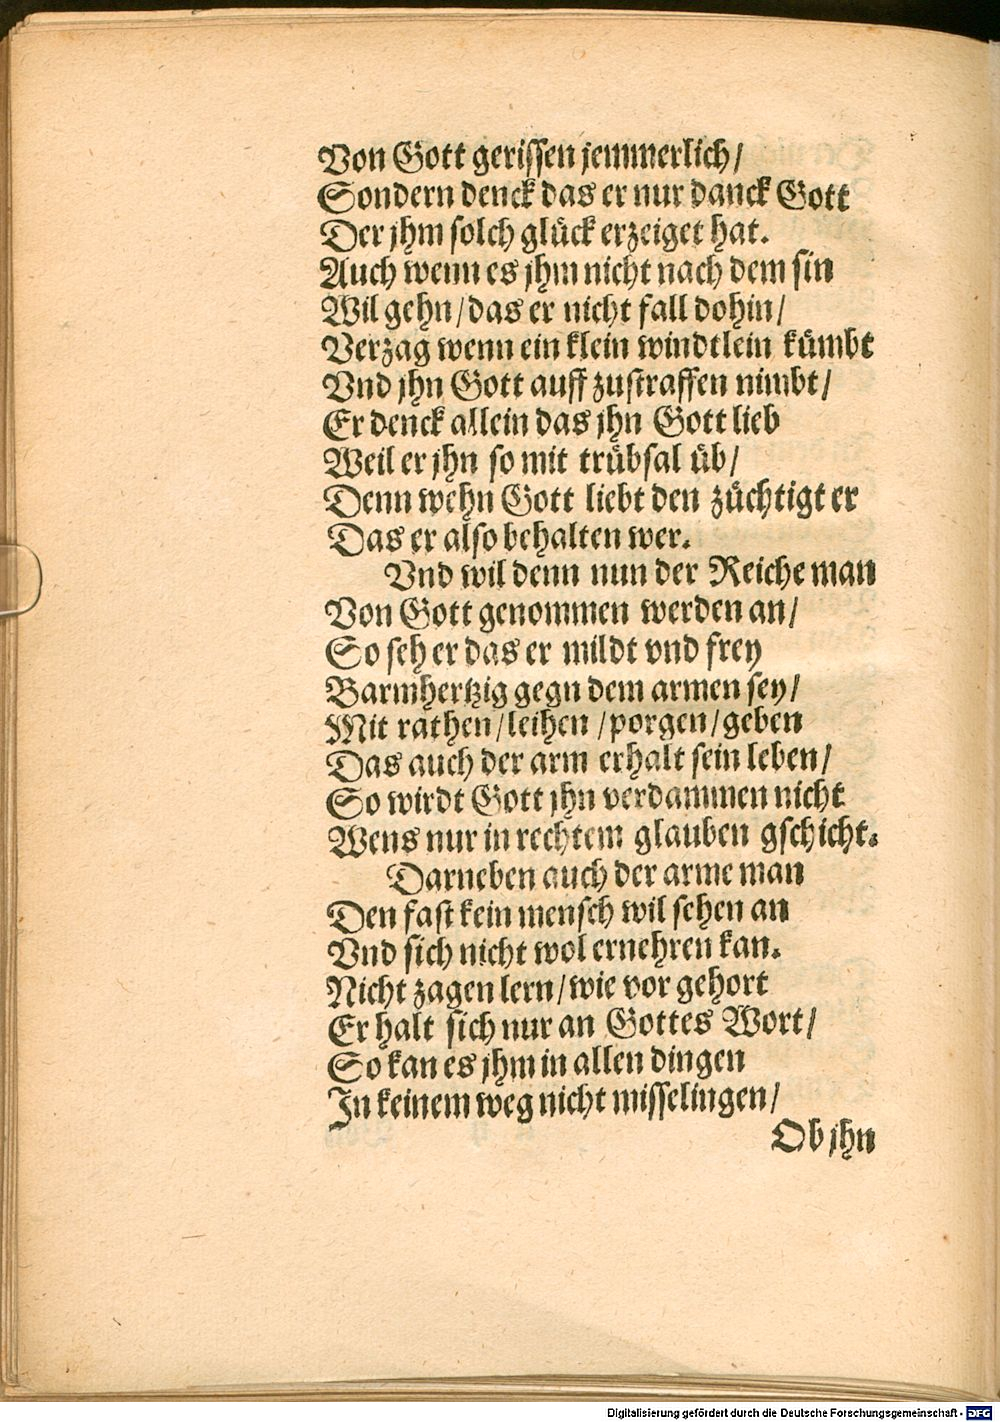 Von Gott gerissen jemmerlich/
Sondern denck das er nur danck Gott
Der jhm solch glück erzeiget hat.
Auch wenn es jhm nicht nach dem sin
Wil gehn/das er nicht fall dohin/
Verzag wenn ein klein windtlein kümbt
Vnd jhn Gott auff zustraffen nimbt/
Er denck allein das jhn Gott lieb
Weil er jhn so mit trübsal üb/
Denn wehn Gott liebt den züchtigt er
Das er also behalten wer.
Vnd wil denn nun der Reiche man
Von Gott genommen werden an/
So seh er das er mildt vnd frey
Barmhertzig gegn dem armen sey/
Mit rathen/leihen/porgen/geben
Das auch der arm erhalt sein leben/
So wirdt Gott jhn verdammen nicht
Wens nur in rechtem glauben gschicht.
Darneben auch der arme man
Den fast kein mensch wil sehen an
Vnd sich nicht wol ernehren kan.
Nicht zagen lern/wie vor gehort
Er halt sich nur an Gottes Wort/
So kan es jhm in allen dingen
In keinem weg nicht misselingen/
Ob jhn
Digitalisierung gefördert durch die Deutsche Forschungsgemeinschaft - DFG